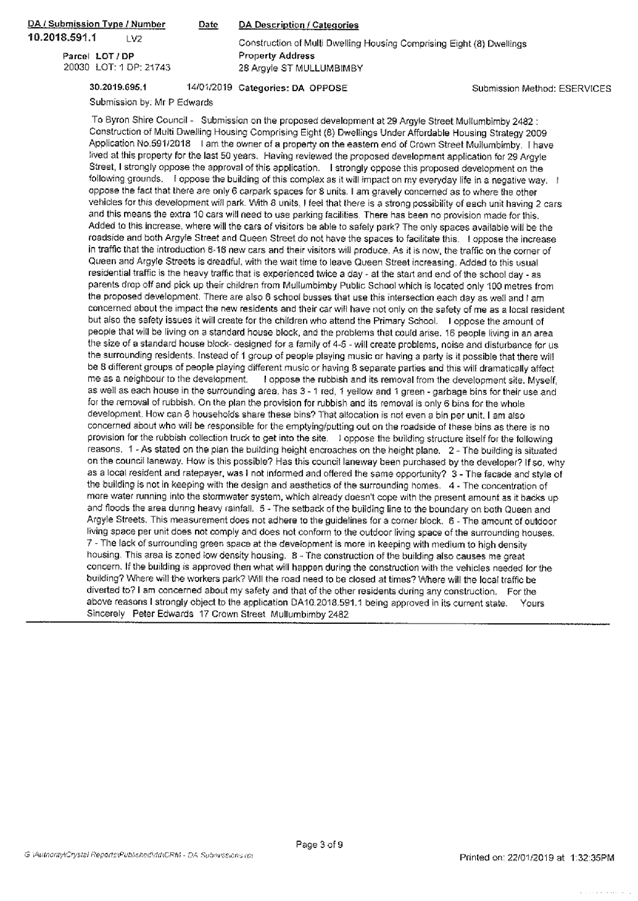 DA / Submission Type / Number Date DA Description / Categories
10.2018.591.1 LV2 Construction of Multi Dwelling Housing Comprising Eight (8) Dwellings
Parcel LOT / DP Property Address
20030 LOT: 1 DP: 21743 28 Argyle ST MULLUMBIMBY
30.2019.695.1 14/01/2019 Categories: DA OPPOSE Submission Method: ESERVICES
Submission by: Mr P Edwards
To Byron Shire Council - Submission on the proposed development at 29 Argyle Street Mullumbimby 2482 :
Construction of Multi Dwelling Housing Comprising Eight (8) Dwellings Under Affordable Housing Strategy 2009
Application No.591/2018 I am the owner of a property on the eastern end of Crown Street Mullumbimby. I have
lived at this property for the last 50 years. Having reviewed the proposed development application for 29 Argyle
Street, I strongly oppose the approval of this application. I strongly oppose this proposed development on the
following grounds. I oppose the building of this complex as it will impact on my everyday life in a negative way. I
oppose the fact that there are only 6 carpark spaces for 8 units. I am gravely concerned as to where the other
vehicles for this development will park. With 8 units, I feel that there is a strong possibility of each unit having 2 cars
and this means the extra 10 cars will need to use parking facilities. There has been no provision made for this.
Added to this increase, where will the cars of visitors be able to safely park? The only spaces available will be the
roadside and both Argyle Street and Queen Street do not have the spaces to facilitate this. I oppose the increase
in traffic that the introduction 8-16 new cars and their visitors will produce. As it is now, the traffic on the corner of
Queen and Argyle Streets is dreadful, with the wait time to leave Queen Street increasing. Added to this usual
residential traffic is the heavy traffic that is experienced twice a day - at the start and end of the school day - as
parents drop off and pick up their children from Mullumbimby Public School which is located only 100 metres from
the proposed development. There are also 6 school busses that use this intersection each day as well and I am
concerned about the impact the new residents and their car will have not only on the safety of me as a local resident
but also the safety issues it will create for the children who attend the Primary School. I oppose the amount of
people that will be living on a standard house block, and the problems that could arise. 16 people living in an area
the size of a standard house block- designed for a family of 4-5 - will create problems, noise and disturbance for us
the surrounding residents. Instead of 1 group of people playing music or having a party is it possible that there will
be 8 different groups of people playing different music or having 8 separate parties and this will dramatically affect
me as a neighbour to the development. I oppose the rubbish and its removal from the development site. Myself,
as well as each house in the surrounding area, has 3 - 1 red, 1 yellow and 1 green - garbage bins for their use and
for the removal of rubbish. On the plan the provision for rubbish and its removal is only 6 bins for the whole
development. How can 8 households share these bins? That allocation is not even a bin per unit. I am also
concerned about who will be responsible for the emptying/putting out on the roadside of these bins as there is no
provision for the rubbish collection truck to get into the site. I oppose the building structure itself for the following
reasons. 1 - As stated on the plan the building height encroaches on the height plane. 2 - The building is situated
on the council laneway. How is this possible? Has this council laneway been purchased by the developer? If so, why
as a local resident and ratepayer, was I not informed and offered the same opportunity? 3 - The facade and style of
the building is not in keeping with the design and aesthetics of the surrounding homes. 4 - The concentration of
more water running into the stormwater system, which already doesn't cope with the present amount as it backs up
and floods the area during heavy rainfall. 5 - The setback of the building line to the boundary on both Queen and
Argyle Streets. This measurement does not adhere to the guidelines for a corner block. 6 - The amount of outdoor
living space per unit does not comply and does not conform to the outdoor living space of the surrounding houses.
7 - The lack of surrounding green space at the development is more in keeping with medium to high density
housing. This area is zoned low density housing. 8 - The construction of the building also causes me great
concern. If the building is approved then what will happen during the construction with the vehicles needed for the
building? Where will the workers park? Will the road need to be closed at times? Where will the local traffic be
diverted to? I am concerned about my safety and that of the other residents during any construction. For the
above reasons I strongly object to the application DA10.2018.591.1 being approved in its current state. Yours
Sincerely Peter Edwards 17 Crown Street Mullumbimby 2482
Page 3 of 9
G:\Authority\Crystal Reports\Published\dd\CRM - DA Submissions.rpt Printed on: 22/01/2019 at 1:32:35PM